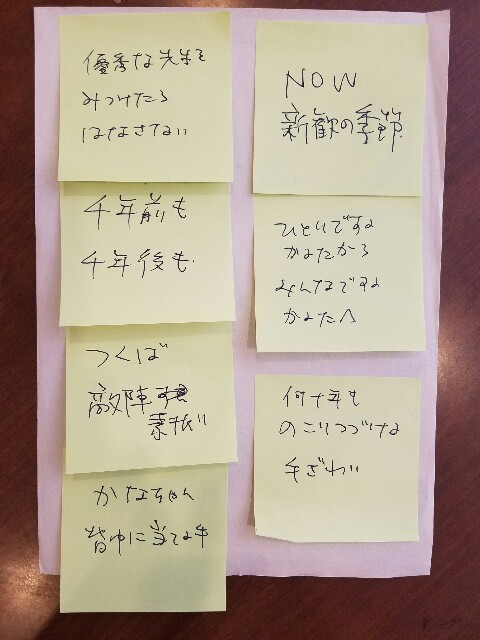 優秀な先生を
みつけたら
はなさない
千年前も
千年後も
つくば
敵陣
素振り
かなちゃん
背中に当てる手
NOW
新歓の季節
ひとりでする
かなたから
みんなでする
かなたへ
何十年も
のこりつづける
手ざわい